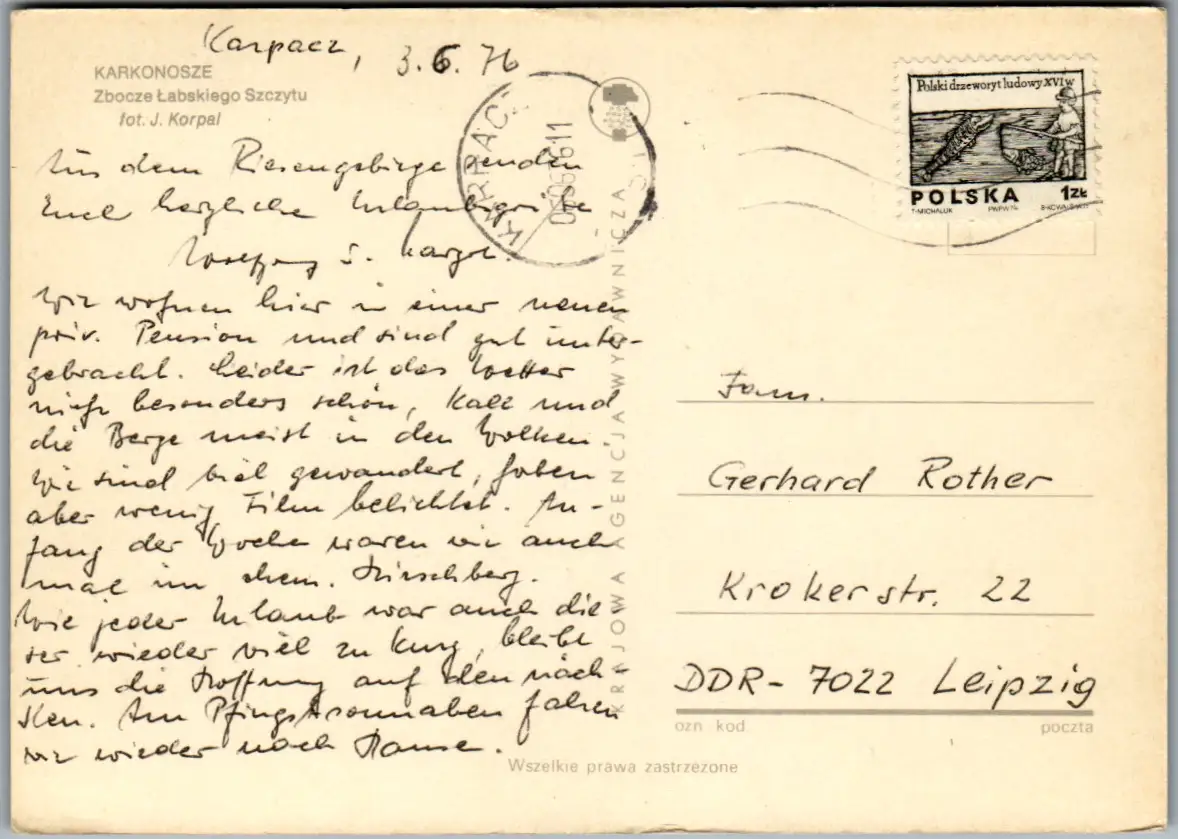 Karpacz, 3.6.76
KARKONOSZE
Zbocze Łabskiego Szczytu
fot. J. Korpal
Aus dem Riesengebirge senden
Euch herzliche Urlaubsgrüße
Wolfgang u. Margot.
Wir wohnen hier in einer neuen
priv. Pension und sind gut unter-
gebracht. Leider ist das Wetter
nicht besonders schön, kalt und
die Berge meist in den Wolken.
Wir sind viel gewandert, haben
aber wenig Film belichtet. An-
fang der Woche waren wir auch
mal im ehem. Hirschberg.
Wie jeder Urlaub war auch die
ser wieder viel zu kurz, bleibt
uns die Hoffnung auf den näch-
sten. Am Pfingstsonnabend fahren
wir wieder nach Hause.
KARPACZ
KRAJOWA AGENCJA WYDAWNICZA
Polski drzeworyt ludowy XVI w
POLSKA 1ZŁ
T·MICHALUK PWPW
Fam.
Gerhard Rother
Krokerstr. 22
DDR-7022 Leipzig
ozn kod poczta
Wszelkie prawa zastrzeżone